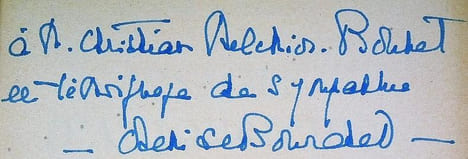 à M. Christian Melchior-Bonnet
en témoignage de sympathie
— Denise Bourdet —